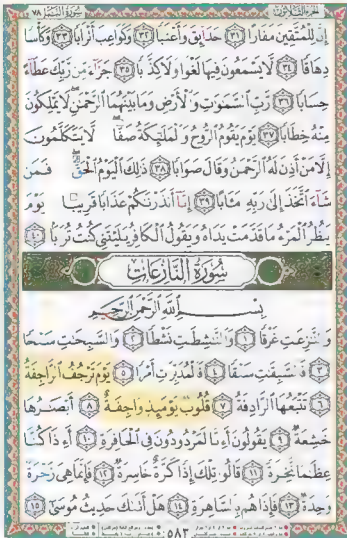 الجزء الثلاثون سورة النبإ ٧٨
إِنَّ لِلْمُتَّقِينَ مَفَازًا ٣١ حَدَائِقَ وَأَعْنَابًا ٣٢ وَكَوَاعِبَ أَتْرَابًا ٣٣ وَكَأْسًا
دِهَاقًا ٣٤ لَّا يَسْمَعُونَ فِيهَا لَغْوًا وَلَا كِذَّابًا ٣٥ جَزَاءً مِّن رَّبِّكَ عَطَاءً
حِسَابًا ٣٦ رَّبِّ السَّمَٰوَٰتِ وَالْأَرْضِ وَمَا بَيْنَهُمَا الرَّحْمَٰنِ لَا يَمْلِكُونَ
مِنْهُ خِطَابًا ٣٧ يَوْمَ يَقُومُ الرُّوحُ وَالْمَلَٰئِكَةُ صَفًّا لَّا يَتَكَلَّمُونَ
إِلَّا مَنْ أَذِنَ لَهُ الرَّحْمَٰنُ وَقَالَ صَوَابًا ٣٨ ذَٰلِكَ الْيَوْمُ الْحَقُّ فَمَن
شَاءَ اتَّخَذَ إِلَىٰ رَبِّهِ مَـَٔابًا ٣٩ إِنَّا أَنذَرْنَٰكُمْ عَذَابًا قَرِيبًا يَوْمَ
يَنظُرُ الْمَرْءُ مَا قَدَّمَتْ يَدَاهُ وَيَقُولُ الْكَافِرُ يَٰلَيْتَنِي كُنتُ تُرَٰبًا ٤٠
سُورَةُ النَّازِعَاتِ
بِسْمِ اللَّهِ الرَّحْمَٰنِ الرَّحِيمِ
وَالنَّٰزِعَٰتِ غَرْقًا ١ وَالنَّٰشِطَٰتِ نَشْطًا ٢ وَالسَّٰبِحَٰتِ سَبْحًا
٣ فَالسَّٰبِقَٰتِ سَبْقًا ٤ فَالْمُدَبِّرَٰتِ أَمْرًا ٥ يَوْمَ تَرْجُفُ الرَّاجِفَةُ
٦ تَتْبَعُهَا الرَّادِفَةُ ٧ قُلُوبٌ يَوْمَئِذٍ وَاجِفَةٌ ٨ أَبْصَٰرُهَا
خَٰشِعَةٌ ٩ يَقُولُونَ أَءِنَّا لَمَرْدُودُونَ فِي الْحَافِرَةِ ١٠ أَءِذَا كُنَّا
عِظَٰمًا نَّخِرَةً ١١ قَالُوا تِلْكَ إِذًا كَرَّةٌ خَاسِرَةٌ ١٢ فَإِنَّمَا هِيَ زَجْرَةٌ
وَٰحِدَةٌ ١٣ فَإِذَا هُم بِالسَّاهِرَةِ ١٤ هَلْ أَتَىٰكَ حَدِيثُ مُوسَىٰ ١٥
٥٨٣